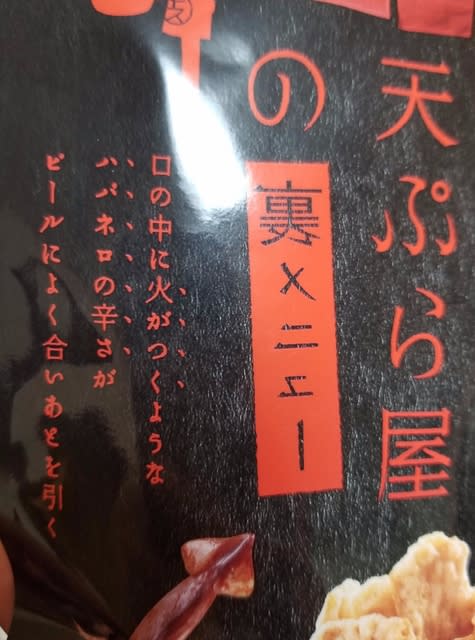 天ぷら屋
の
裏メニュー
口の中に火がつくような
ハバネロの辛さが
ビールによく合いあとを引く